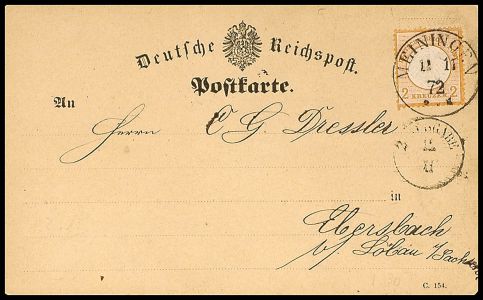 Deutsche Reichspost.
Postkarte.
MEININGEN
11 11
72
2 KREUZER 2
An
Herrn C G. Dressler
2 AUSGABE
11
11
in
Ebersbach
b/ Löbau /Sachsen
C. 154.